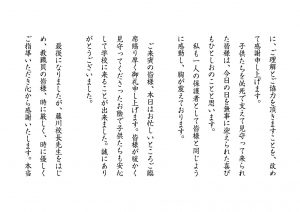 に、ご理解とご協力を頂きますことを、改め
て感謝申し上げます。
子供たちを必死で支えて見守って来られ
た皆様は、今日の日を無事に迎えられた喜び
もひとしおのことと思います。
私も一人の保護者として皆様と同じよう
に感動し、胸が震えております。
ご来賓の皆様、本日はお忙しいところご臨
席賜り厚く御礼申し上げます。皆様が暖かく
見守ってくださったお陰で子供たちも安心
して学校に来ることが出来ました。誠にあり
がとうございました。
最後になりましたが、藤川校長先生をはじ
め、教職員の皆様、時に厳しく、時に優しく
ご指導いただき心から感謝いたします。本当